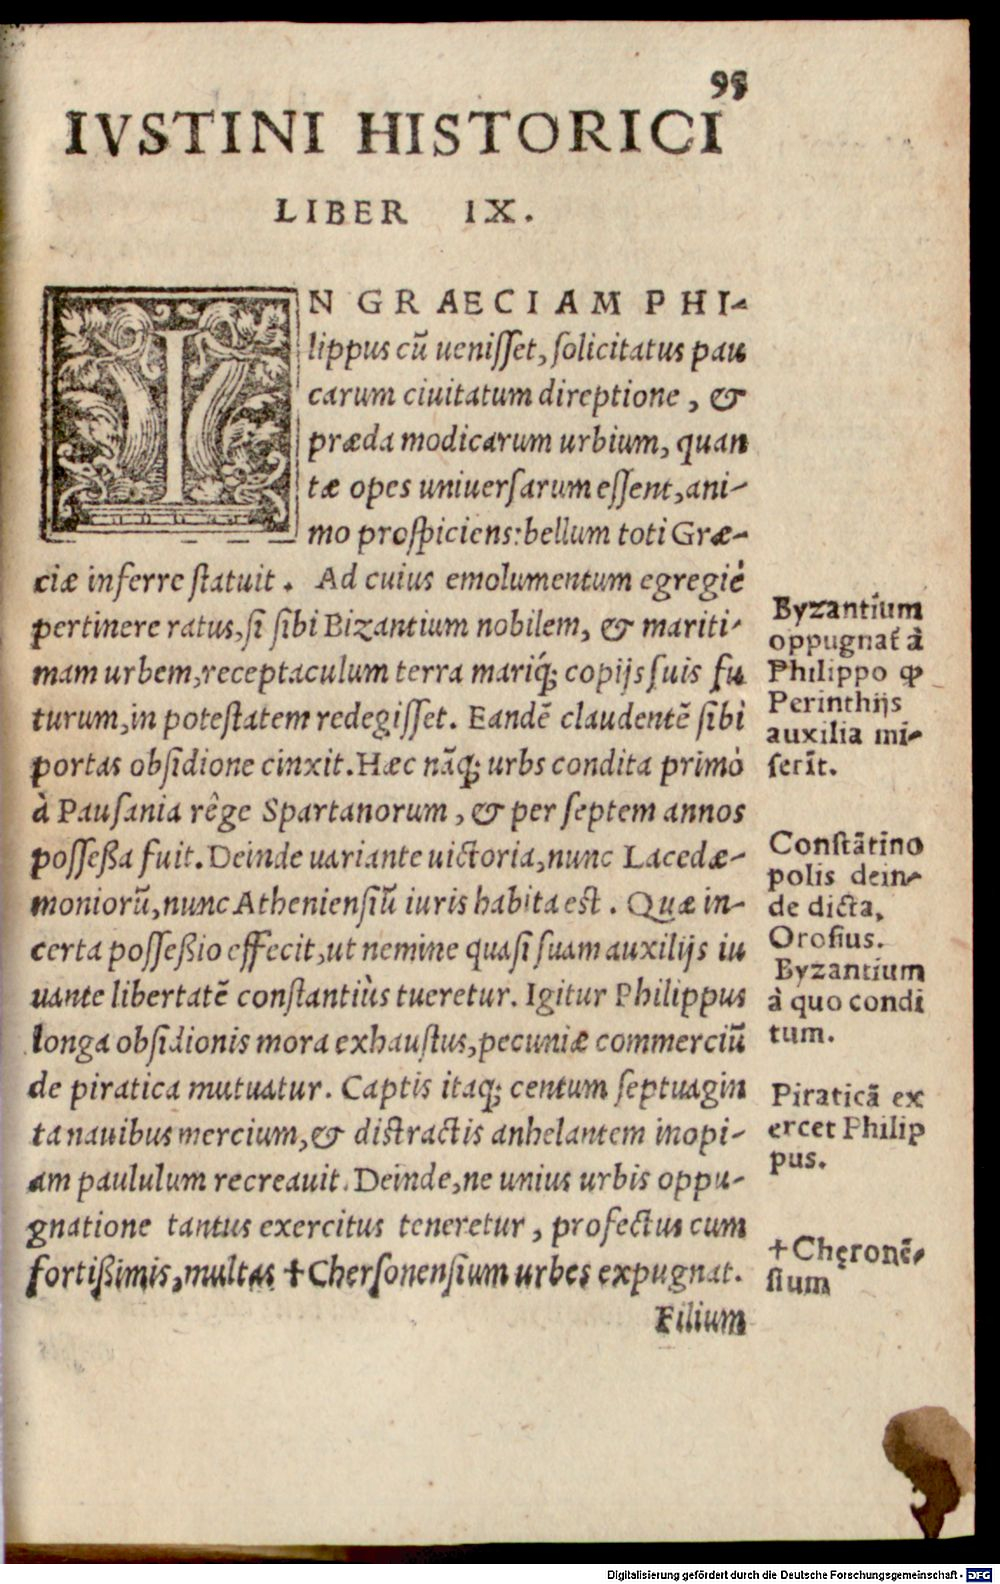 95
IVSTINI HISTORICI
LIBER IX.
IN GRAECIAM PHI-
lippus cū uenisset, solicitatus pau
carum ciuitatum direptione, &
præda modicarum urbium, quan
tæ opes uniuersarum essent, ani-
mo prospiciens: bellum toti Græ-
ciæ inferre statuit. Ad cuius emolumentum egregiè
pertinere ratus, si sibi Bizantium nobilem, & mariti-
mam urbem, receptaculum terra mariq́; copijs suis fu
turum, in potestatem redegisset. Eandē claudentē sibi
portas obsidione cinxit. Hæc nāq; urbs condita primò
à Pausania rêge Spartanorum, & per septem annos
posseßa fuit. Deinde uariante uictoria, nunc Lacedæ-
moniorū, nunc Atheniensiū iuris habita est. Quæ in-
certa posseßio effecit, ut nemine quasi suam auxilijs iu
uante libertatē constantiùs tueretur. Igitur Philippus
longa obsidionis mora exhaustus, pecuniæ commerciū
de piratica mutuatur. Captis itaq; centum septuagin
ta nauibus mercium, & distractis anhelantem inopi-
am paululum recreauit. Deinde, ne unius urbis oppu-
gnatione tantus exercitus teneretur, profectus cum
fortißimis, multas †Chersonensium urbes expugnat.
Filium
Byzantium
oppugnat́ à
Philippo ꝙ
Perinthijs
auxilia mi-
serīt.
Constātino
polis dein-
de dicta,
Orosius.
Byzantium
à quo condi
tum.
Piraticā ex
ercet Philip
pus.
†Cheronē-
sium
Digitalisierung gefördert durch die Deutsche Forschungsgemeinschaft - DFG